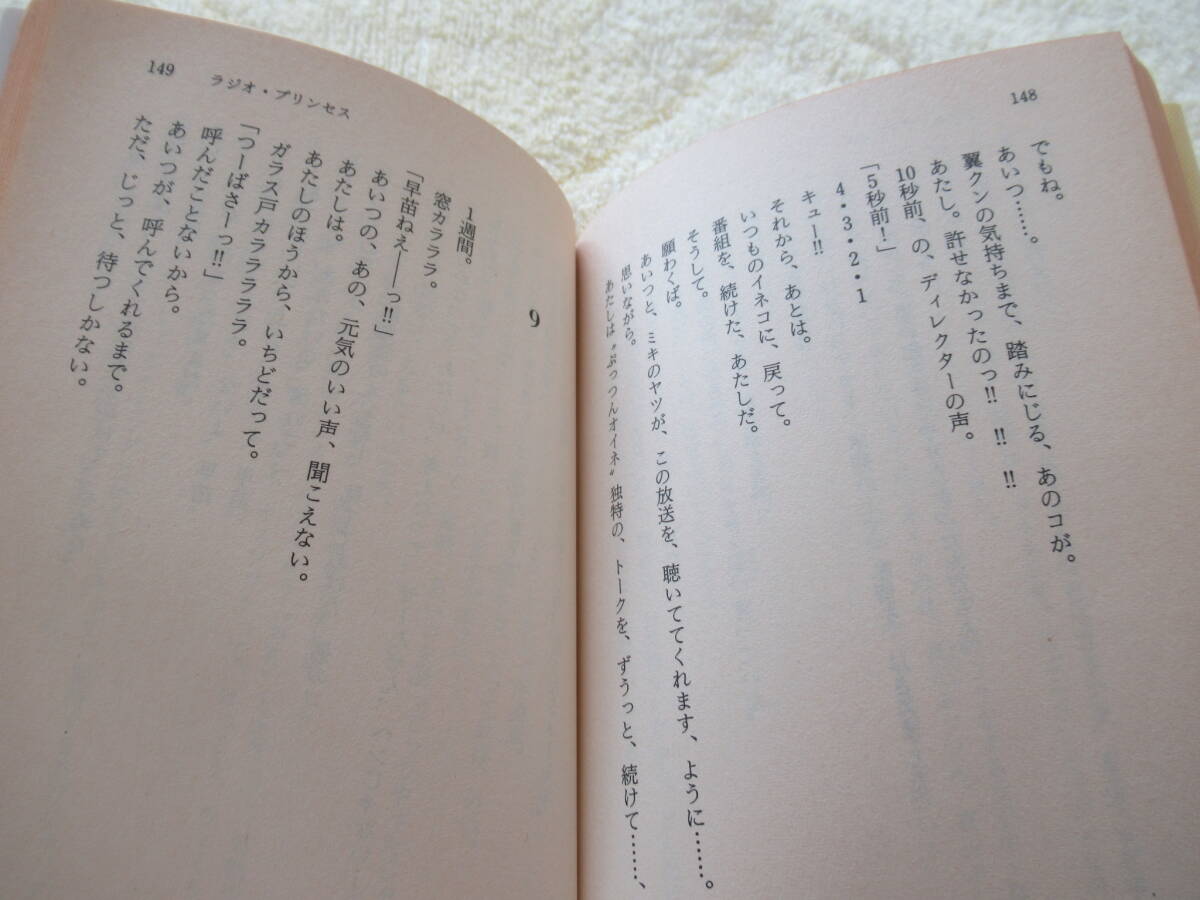 148
でもね。
あいつ……。
翼クンの気持ちまで、踏みにじる、あのコが。
あたし。許せなかったのっ!! !! !!
10秒前、の、ディレクターの声。
「5秒前！」
4・3・2・1
キュー!!
それから、あとは。
いつものイネコに、戻って。
番組を、続けた、あたしだ。
そうして。
願わくば。
あいつと、ミキのヤツが、この放送を、聴いててくれます、ように……。
思いながら。
あたしは〝ぷっつんオイネ〟独特の、トークを、ずうっと、続けて……、
149 ラジオ・プリンセス
9
1週間。
窓カラララ。
「早苗ねえ――っ!!」
あいつの、あの、元気のいい声、聞こえない。
あたしは。
あたしのほうから、いちどだって。
ガラス戸カララララ。
「つーばさーっ!!」
呼んだことないから。
あいつが、呼んでくれるまで。
ただ、じっと、待つしかない。